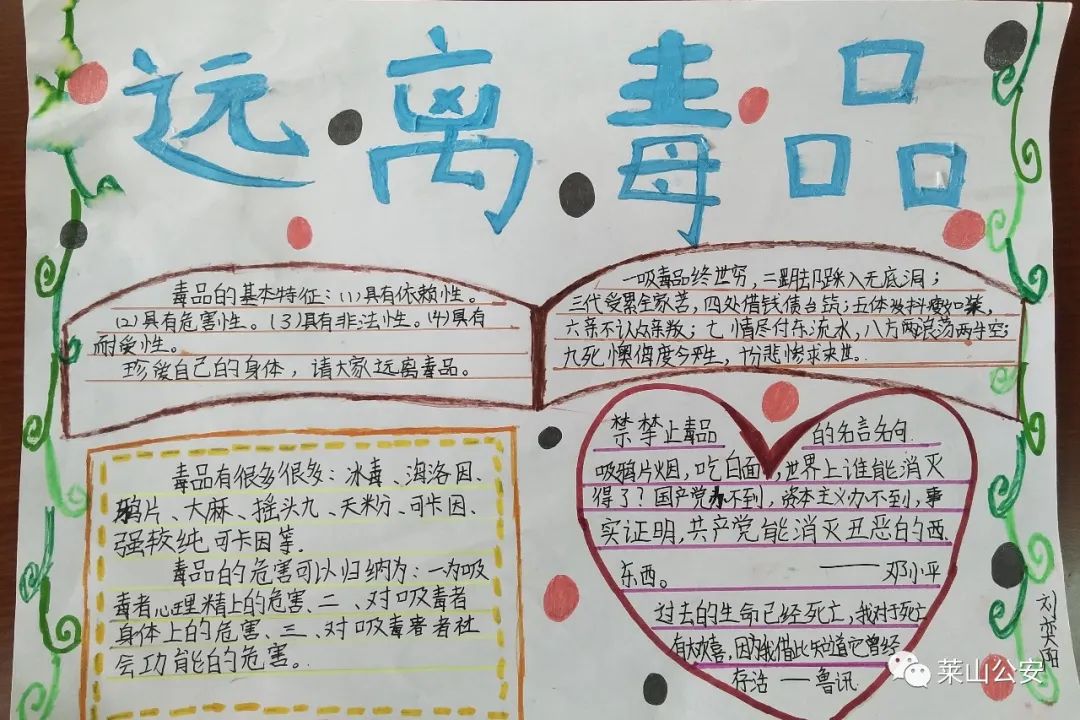 远离毒品
毒品的基本特征：(1)具有依赖性。
(2)具有危害性。(3)具有非法性。(4)具有
耐受性。
珍爱自己的身体，请大家远离毒品。
一吸毒品终世穷，二踩入无底洞；
三代受累全家苦，四处借钱债台筑；五体
六亲不认众亲叛；七情尽付东流水，八方两空；
九死，十分悲惨求来世。
毒品有很多很多：冰毒、海洛因、
鸦片、大麻、摇头丸、天粉、可卡因、
强较纯可卡因等.
毒品的危害可以归纳为：一为吸
毒者心理精上的危害、二、对吸毒者
身体上的危害、三、对吸毒者者社
会功能的危害。
禁禁止毒品 的名言名句.
吸鸦片烟，吃白面，世界上谁能消灭
得了？国产党办不到，资本主义办不到，事
实证明，共产党能消灭丑恶的西
东西。 ——邓小平
过去的生命已经死亡，我对于死亡
有大欢喜，因为我借此知道它曾经
存活 —鲁讯
刘奕阳
莱山公安